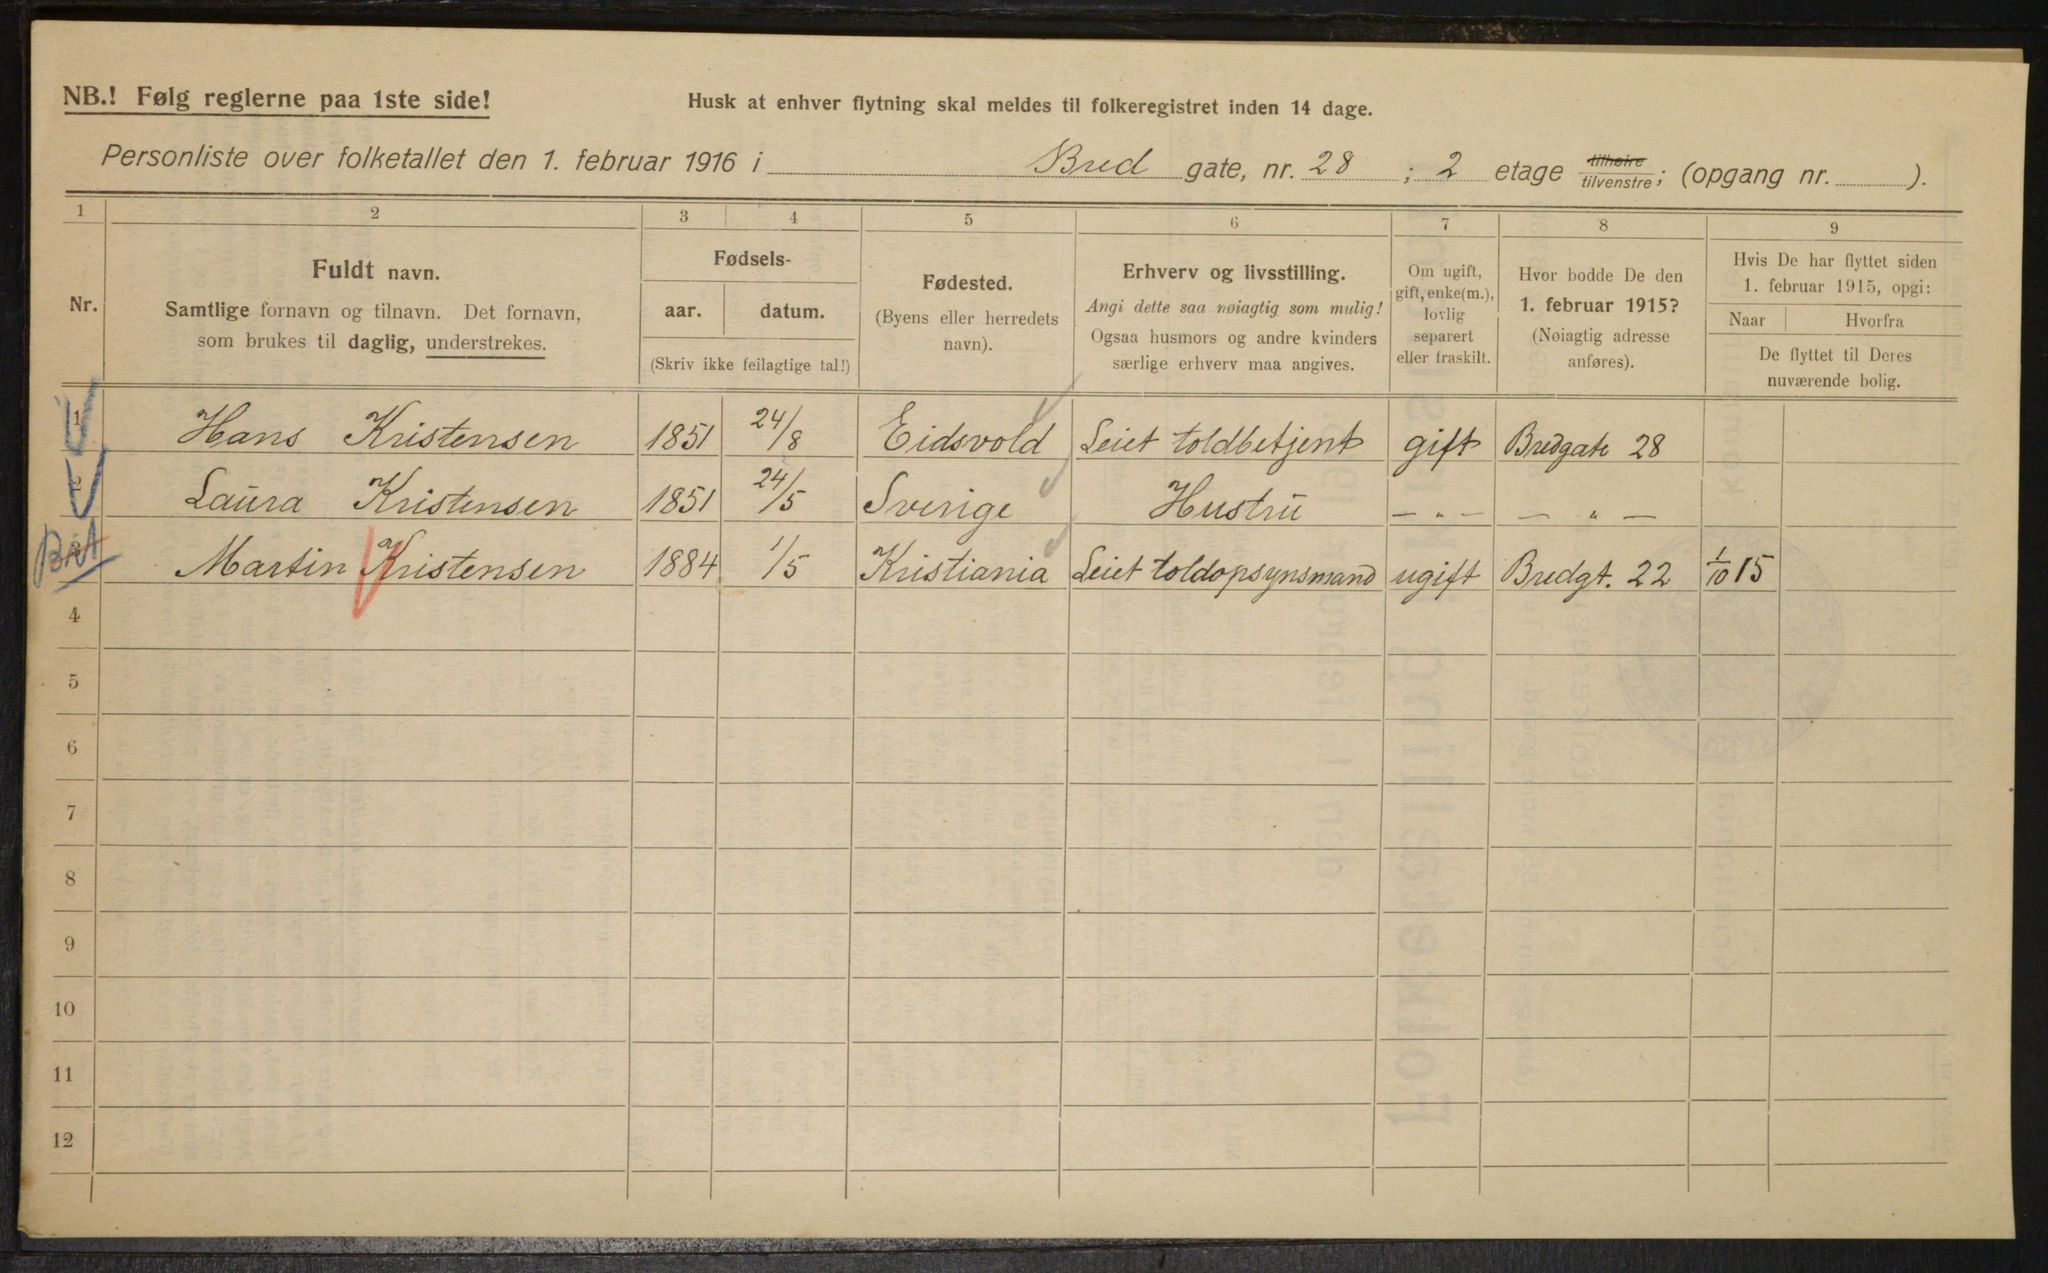 NB.! Følg reglerne paa 1ste side!
Husk at enhver flytning skal meldes til folkeregistret inden 14 dage.
Personliste over folketallet den 1. februar 1916 i Bred gate, nr. 28 ; 2 etage tilhøire tilvenstre; (opgang nr. ).
1 2 3 4 5 6 7 8 9
Nr.
Fuldt navn.
Samtlige fornavn og tilnavn. Det fornavn,
som brukes til daglig, understrekes.
Fødsels-
aar. datum.
(Skriv ikke feilagtige tal!)
Fødested.
(Byens eller herredets
navn).
Erhverv og livsstilling.
Angi dette saa nøiagtig som mulig!
Ogsaa husmors og andre kvinders
særlige erhverv maa angives.
Om ugift,
gift, enke(m.),
lovlig
separert
eller fraskilt.
Hvor bodde De den
1. februar 1915?
(Nøiagtig adresse
anføres).
Hvis De har flyttet siden
1. februar 1915, opgi:
Naar Hvorfra
De flyttet til Deres
nuværende bolig.
1 Hans Kristensen 1851 24/8 Eidsvold Leiet toldbetjent gift Bredgate 28
2 Laura Kristensen 1851 24/5 Sverige Hustru — „ — — „ —
3 Martin Kristensen 1884 1/5 Kristiania Leiet toldopsynsmand ugift Bredgt. 22 1/10 15
4
5
6
7
8
9
10
11
12